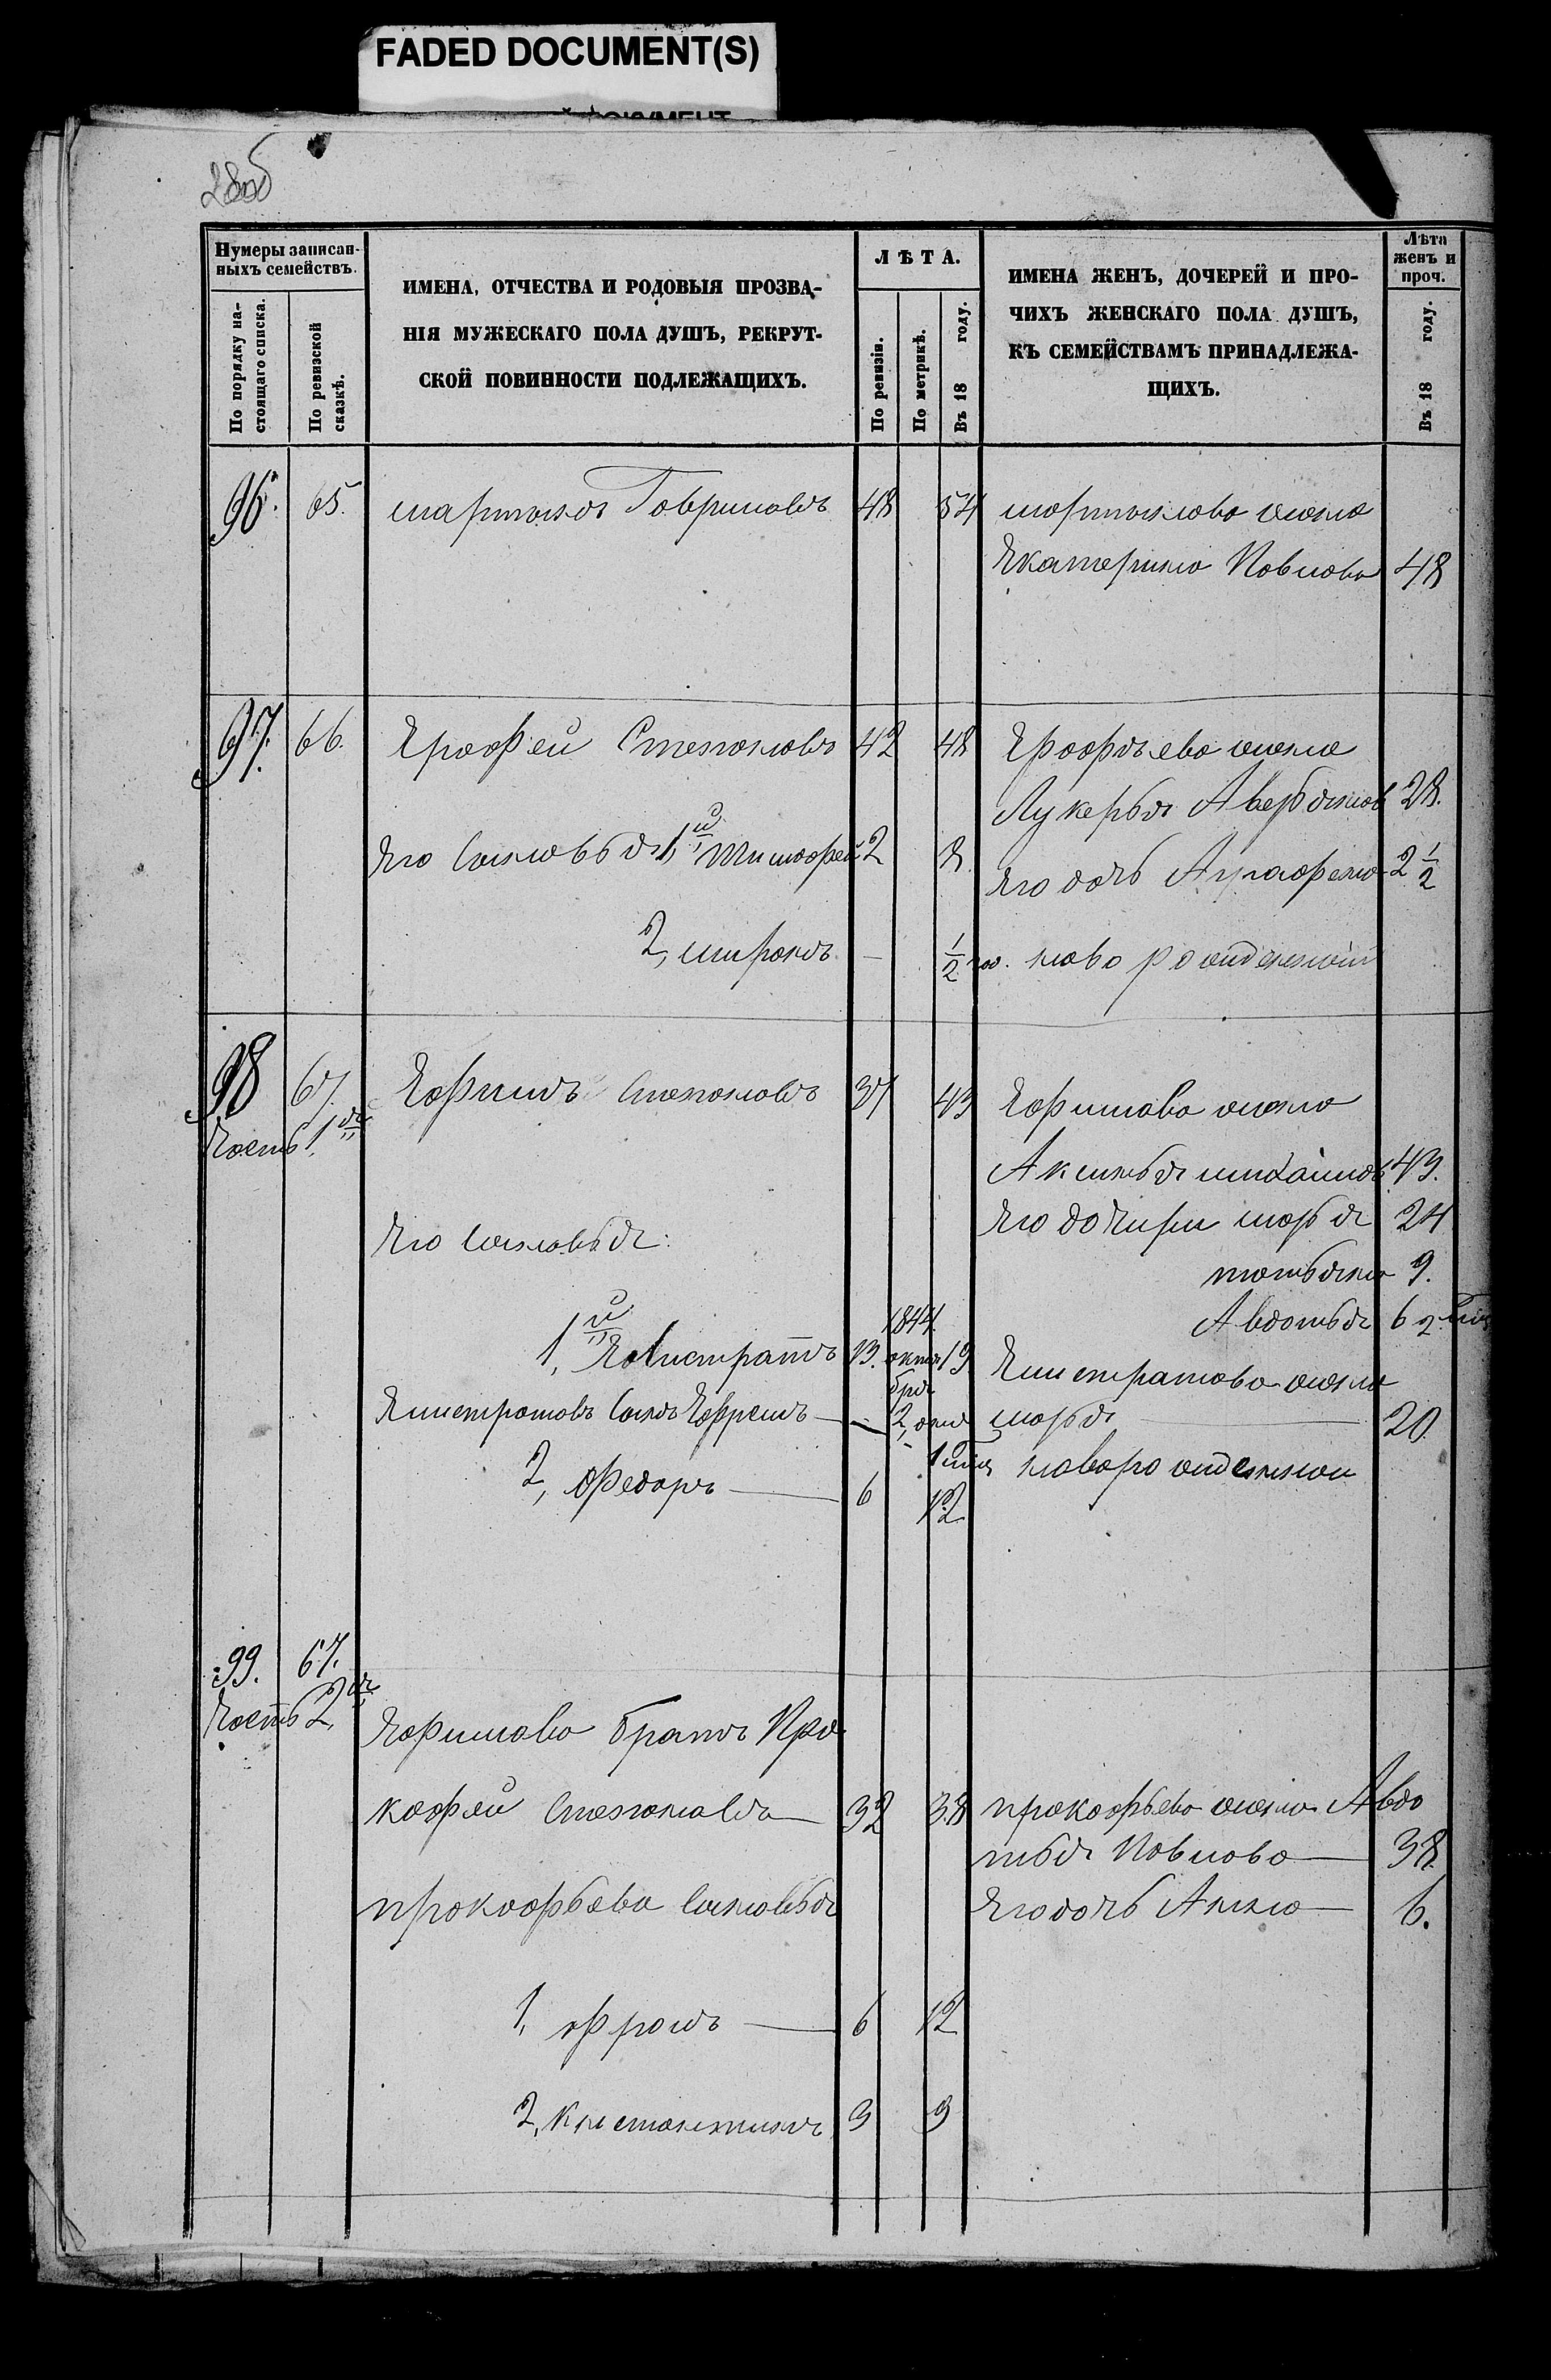 FADED DOCUMENT(S)
28об
Нумеры записан-
ныхъ семействъ.
По порядку на-
стоящаго списка.
По ревизской
сказкѣ.
ИМЕНА, ОТЧЕСТВА И РОДОВЫЯ ПРОЗВА-
НІЯ МУЖЕСКАГО ПОЛА ДУШЪ, РЕКРУТ-
СКОЙ ПОВИННОСТИ ПОДЛЕЖАЩИХЪ.
ЛѢТА.
По ревизіи.
По метрикѣ.
Въ 18 году.
ИМЕНА ЖЕНЪ, ДОЧЕРЕЙ И ПРО-
ЧИХЪ ЖЕНСКАГО ПОЛА ДУШЪ,
КЪ СЕМЕЙСТВАМЪ ПРИНАДЛЕЖА-
ЩИХЪ.
Лѣта
женъ и
проч.
Въ 18 году.
96. 65. мартынъ Гавриловъ 48 54 мартынова жена
Екатерина Павлова 48
97. 66. Ерофей Степановъ 42 48 Ерофѣева жена
Лукерья Аверьянов 28.
Его Сыновья 1й Тимофей 2 8
Его дочь Аграфена 2 1/2
2, миронъ — 1/2 год. ново рожденный
98 67. Ефимъ Степановъ 37 43 Ефимова жена
Часть 1я
Аксинья михайлов 43.
Его дочири марья 24
Его Сыновья:
татьяна 9.
Авдотья 6
1й Елистратъ 13. 1844 октя 19
бря
Елистратова жена
Елистратовъ Сынъ Ефремъ — 2, марья — 20
2, Федоръ — 6 12
новорожденной
99. 67.
Часть 2я
Ефимова братъ Про
кофей Степановъ — 32 38 прокофьева жена Авдо
тья Павлова — 38
прокофьева Сыновья
Его дочь Анна — 6.
1, Фролъ — 6 12
2, Кнстантинъ 3 9